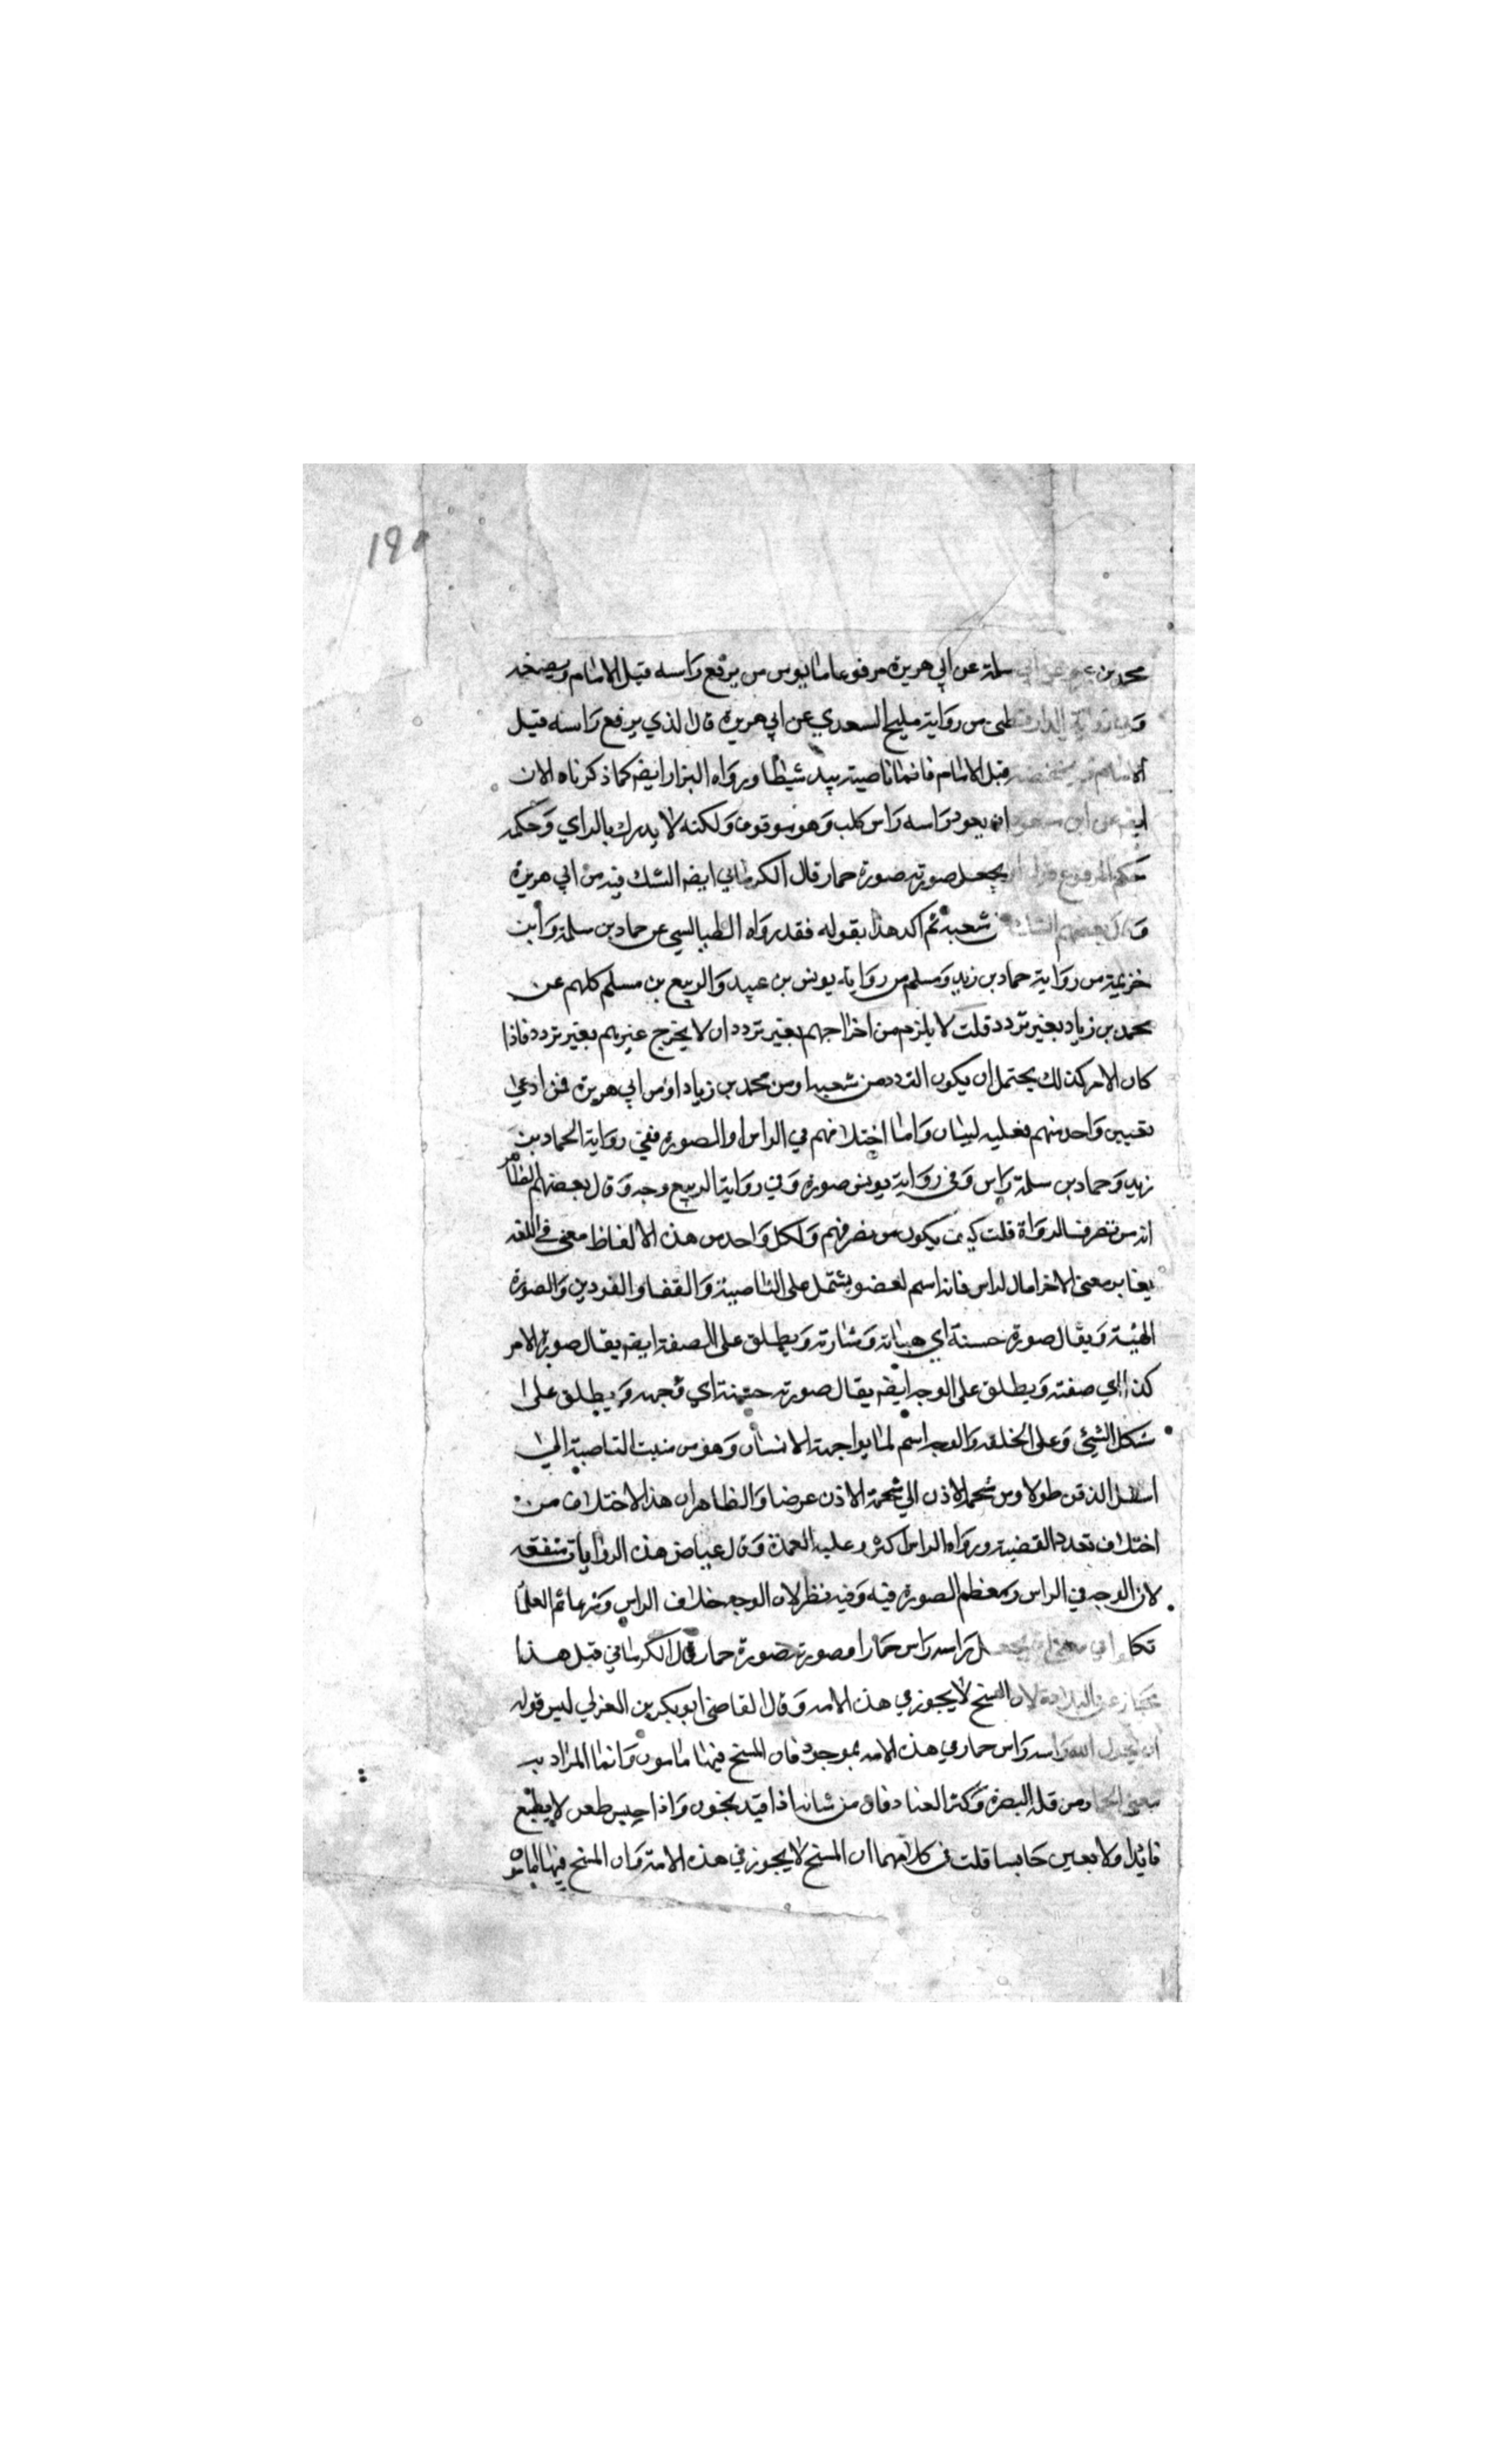 ١٩٥
محمد بن سلمة عن ابي هريرة مرفوعا ما يومن من يرفع راسه قبل الامام ويضعه
الدارقطنى من رواية مليح السعدي عن ابي هريرة قال الذي يرفع راسه قبل
الامام قبل الامام فانما ناصيته بيد شيطا ورواه البزار ايضا كما ذكرناه الان
ان يعود راسه راس كلب وهو موقوف ولكنه لا يدرك بالراي وحكمه
حكم المرفوع يجعل صورته صورة حمار قال الكرماني ايضا الشك فيه من ابي هريرة
وقال بعضهم الشك شعبة ثم اكد هذا بقوله فقد رواه الطيالسي عن حماد بن سلمة وابن
خزيمة من رواية حماد بن زيد ومسلم من رواية يونس بن عبيد والربيع بن مسلم كلهم عن
محمد بن زياد بغير تردد قلت لا يلزم من اخراجهم بغير تردد ان لا يخرج غيرهم بغير تردد فاذا
كان الامر كذلك يحتمل ان يكون التردد من شعبة او من محمد بن زياد او من ابي هريرة فمن ادعي
تعيين واحد منهم فعليه لبيان واما اختلافهم في الراس او الصورة ففي رواية الحماد بن
زيد وحماد بن سلمة راس وفي رواية يونس صورة وفي رواية الربيع وجه وقال بعضهم الظاهر
انه من تصرف الرواة قلت كيف يكون من تصرفهم ولكل واحد من هذه الالفاظ معني في اللغه
يغاير معني الاخر اما لراس فانه اسم لعضو يشتمل علي الناصية والقفا والفودين والصورة
الهيئة ويقال صورة حسنة اي هياته وشارته ويطلق علي الصفة ايضا يقال صورة الامر
كذا اي صفته ويطلق علي الوجه ايضا يقال صورته حسنة اي وجهه ويطلق علي
شكل الشيئ وعلي الخلقه والوجه اسم لما يواجهه الانسان وهو من منبت الناصية الي
اسفل الذقن طولا ومن شحمة الاذن الي شحمة الاذن عرضا والظاهر ان هذا الاختلاف من
اختلاف تعدد القضية ورواة الراس اكثر وعليه العمدة وقال عياض هذه الروايات متفقه
لان الوجه في الراس ومعظم الصورة فيه وفيه نظر لان الوجه خلاف الراس ثم العلما
تكلموا في راسه راس حمار او صورته صورة حمار قال الكرماني قبل هذا
مجاز عن البلادة لان المسخ لا يجوز في هذه الامه وقال القاضي ابو بكر بن العزلي ليس قوله
ان يحول الله راسه راس حمار في هذه الامه بموجود فان المسخ فيها مامون وانما المراد به
معني الحمار من قلة البصرة وكثر العناد فان من شانه اذا قيد يخون واذا حبس طعن لا يطيع
قائدا ولا يعين حابسا قلت في كلامهما ان المسخ لا يجوز في هذه الامة وان المسخ فيها